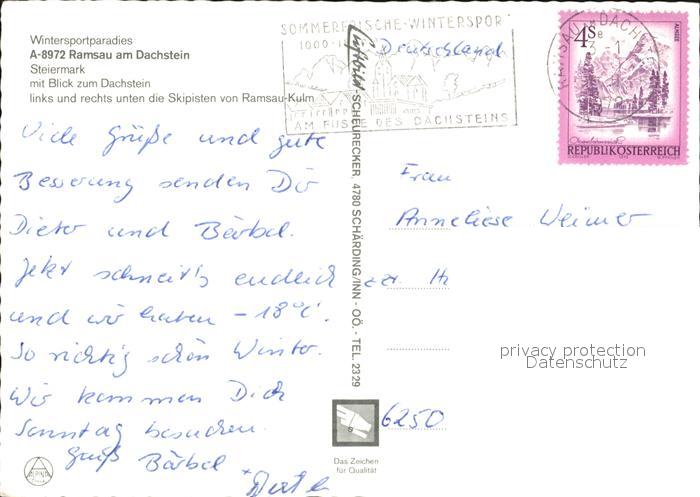 Wintersportparadies
A-8972 Ramsau am Dachstein
Steiermark
mit Blick zum Dachstein
links und rechts unten die Skipisten von Ramsau-Kulm
Viele Grüße und gute
Besserung senden Dir
Dieter und Bärbel.
Jetzt schneit's endlich
und wir haben -18°C.
So richtig schön Winter.
Wir kommen Dich
Sonntag besuchen.
Gruß Bärbel
+ Dieter
Luftbild-SCHEURECKER, 4780 SCHÄRDING/INN - OÖ. - TEL. 2329
SOMMERFRISCHE-WINTERSPOR
AM FUSSE DES DACHSTEINS
Deutschland
RAMSAU DACHST
4S
ALMSEE
REPUBLIK ÖSTERREICH
Frau
Anneliese Weimer
zzt.
6250
privacy protection
Datenschutz
Das Zeichen
für Qualität
ALPINE